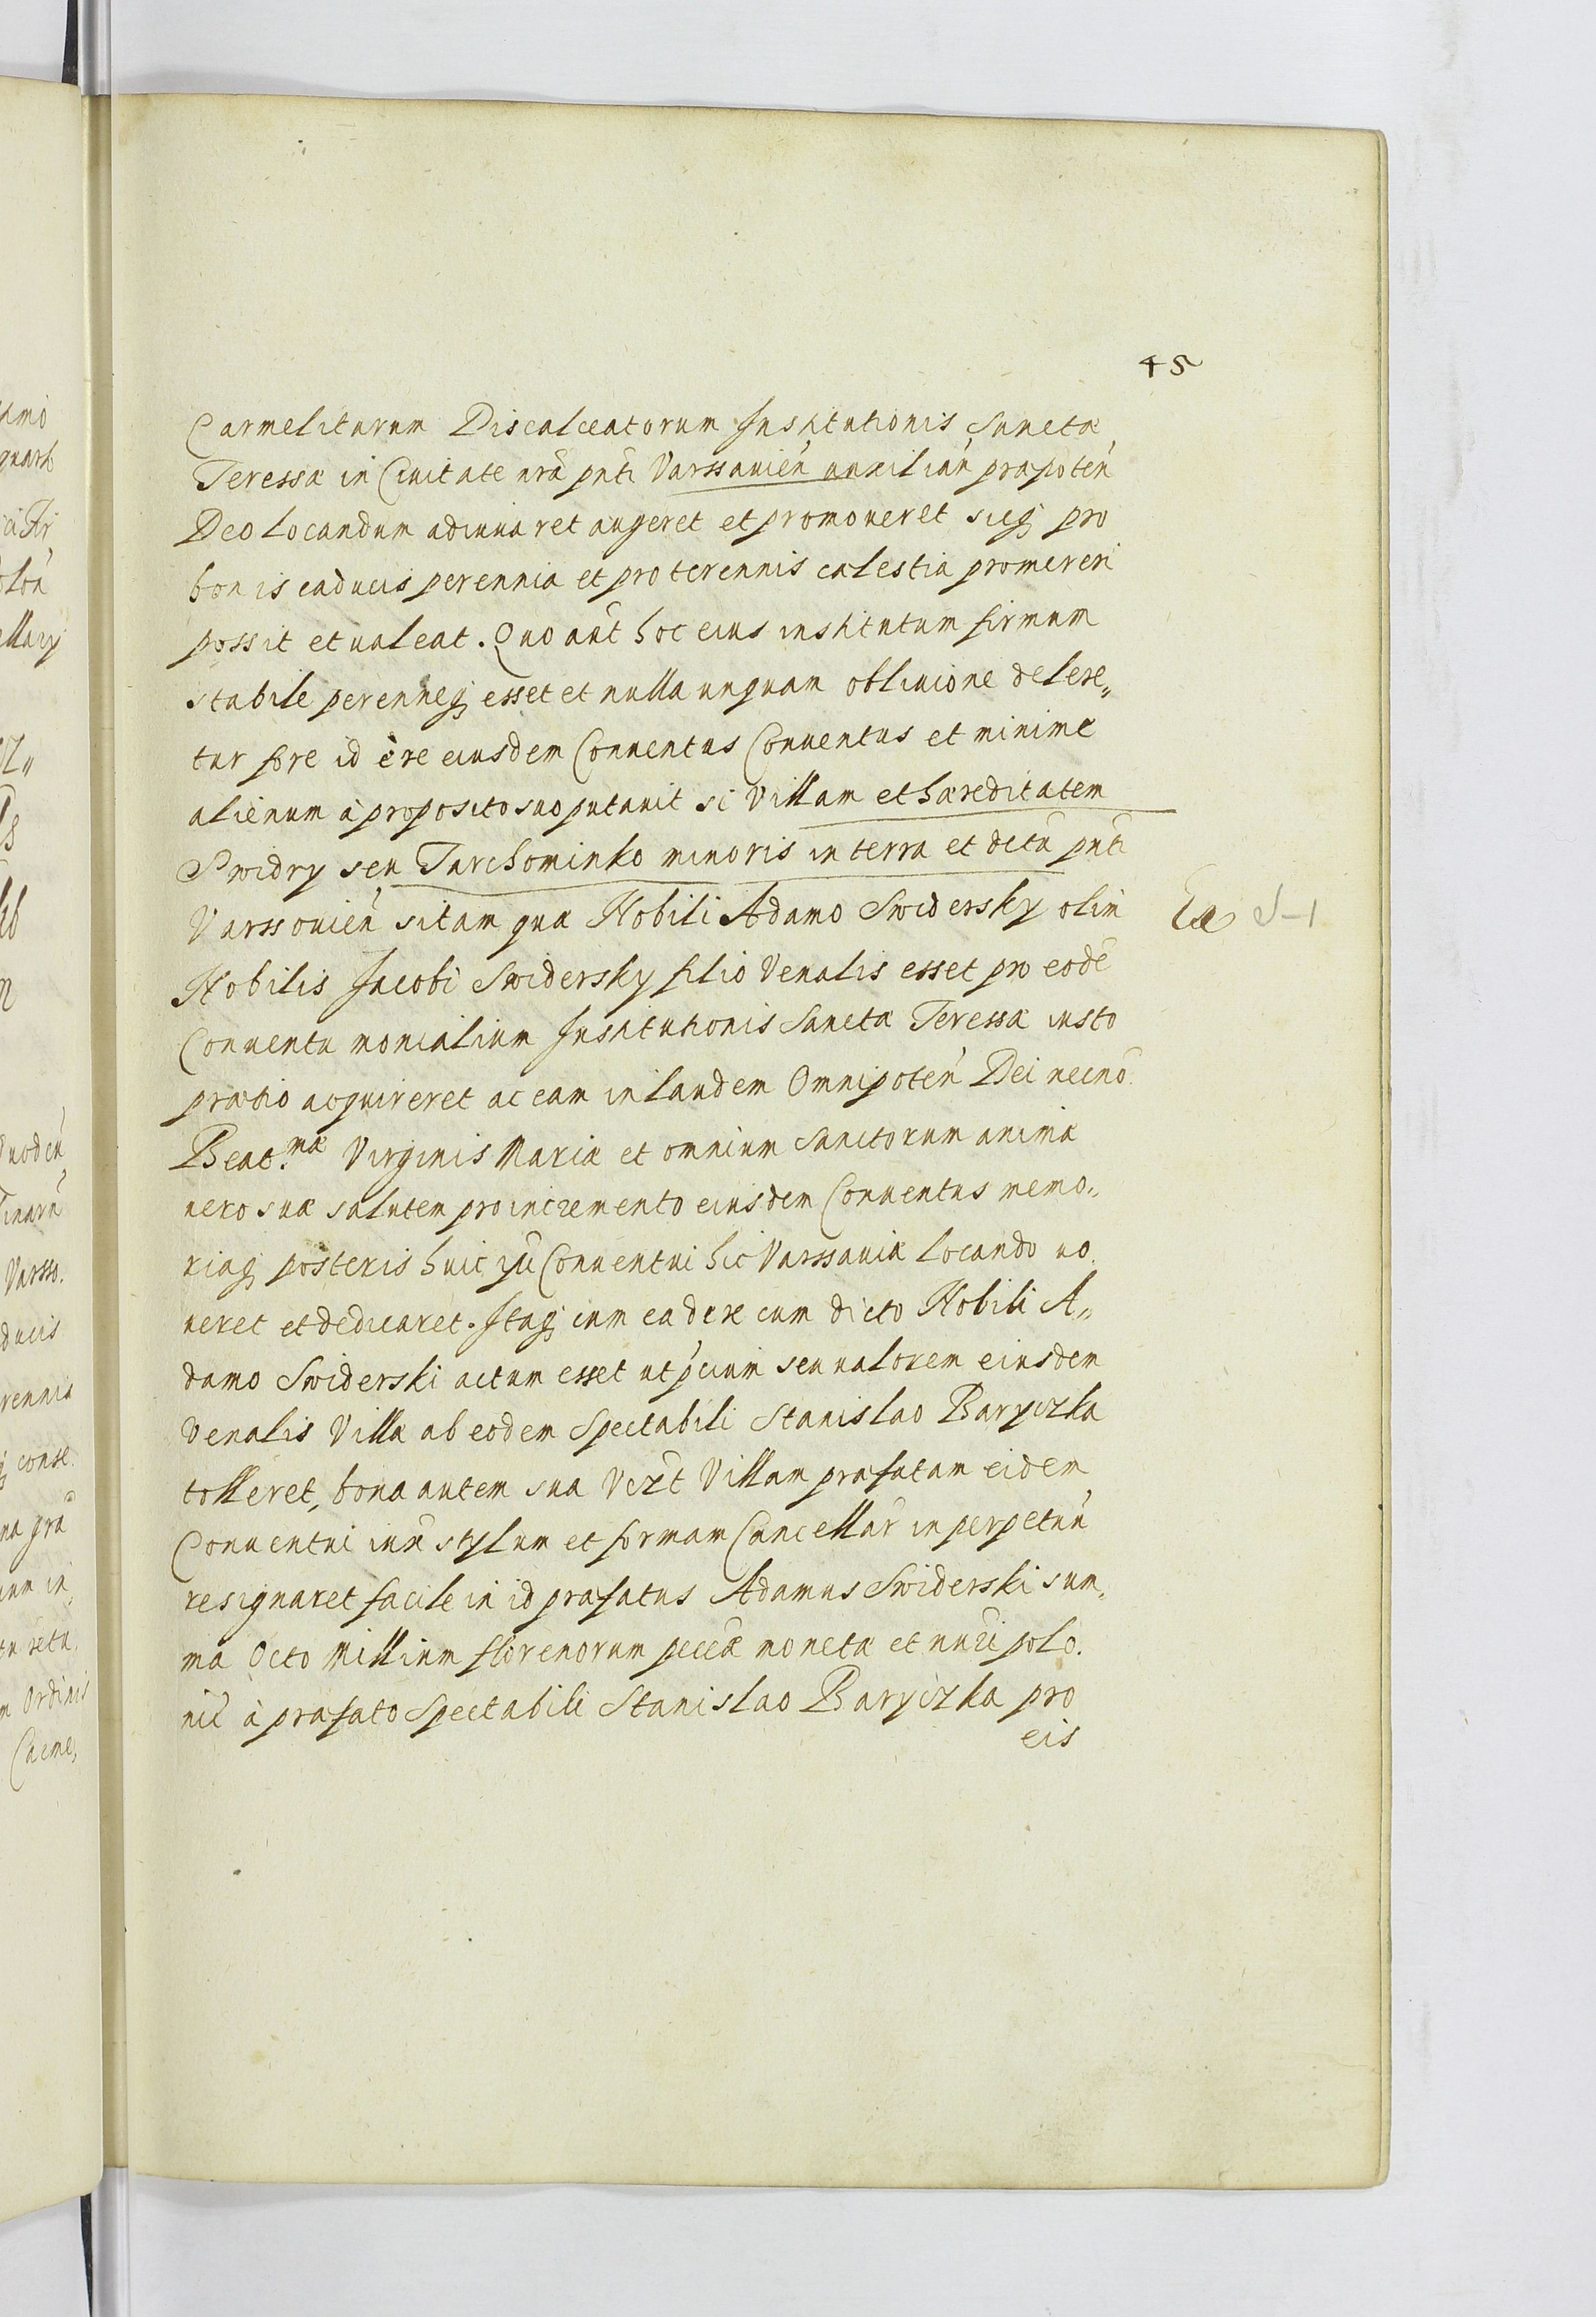 45
Carmelitarum Discalceatorum Institutionis Sanctæ
Teressæ in Civitate nrã pnti Varssavień auxiliań præpoteń
Deo locandum adiuuaret augeret et promoueret sicq; pro
bonis caducis perennia et pro terrennis cælestia promereri
possit et ualeat. Quo aut̃ hoc eius institutum firmum
stabile perenneq; esset et nulla unquam obliuione delere„
tur fore id è re eiusdem Conuentus Conuentus et minime
alienum à proposito suo putauit si Villam et hæreditatem
Swidry seu Tarchominko minoris in terra et dĉtu pnti
Varssouień sitam quæ Nobili Adamo Swidersky olim
Nobilis Jacobi Swidersky filio Venalis esset pro eodẽ
Conuentu monialium Institutionis Sanctæ Teressæ iusto
prætio acquireret ac eam in laudem Omnipoteń Dei necnõ
Beat.mæ Virginis Mariæ et omnium Sanctorum animæ
uero suæ salutem pro incremento eiusdem Conuentus memo„
riaq; posteris huic Conuentui hic Varssauiæ locando uo.
ueret et dedicaret. Itaq; cum ea de re cum dicto Nobili A„
damo Swiderski actum esset ut pcium seu ualorem eiusdem
Venalis Villæ ab eodem Spectabili Stanislao Baryczka
tolleret, bona autem sua Vezt Villam præfatam eidem
Conuentui iux̃ stylum et formam Cancellar̃ in perpetuũ
resignaret facile in id præfatus Adamus Swiderski sum„
ma Octo Millium florenorum pecćæ monetæ et nuri polo.
nic̃ à præfato Spectabili Stanislao Baryczka pro
eis